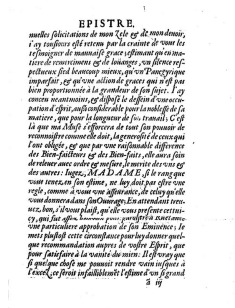 EPISTRE.
nuelles solicitations de mon Zele & de mon devoir,
j'ay tousiours esté retenu par la crainte de vous les
tesmoigner de mauuaise grace; estimant qu'en ma-
tiere de remerciments & de loüanges, vn silence res-
pectueux sied beaucoup mieux, qu'vn Panegyrique
imparfait, & qu'vne action de graces qui n'est pas
bien proportionnée à la grandeur de son sujet. I'ay
conceu neantmoins, & disposé le dessein d'vne occu-
pation d'esprit, aussi considerable pour la noblesse de sa
matiere, que pour la longueur de son trauail; C'est
là que ma Muse s'efforcera de tout son pouuoir de
reconnoistre comme elle doit, la generosité de ceux qui
l'ont obligée, & que par vne raisonnable difference
des Bien-faicteurs & des Bien-faits, elle aura soin
de releuer avec ordre & mesure, le merite des vns &
des autres: Iugez, MADAME, si le rang que
vous tenez, en son estime, ne luy doit pas estre vne
regle, comme à vous vne asseurance, de celuy qu'elle
vous donnera dans son Ouurage; En attendant trou-
uez, bon, s'il vous plaist, qu'elle vous presente cettui-
cy, qui fut assez heureux pour
vne particuliere approbation de son Eminence; Ie
mets plustost cette circonstance pour luy donner quel-
que recommandation aupres de vostre Esprit, que
pour satisfaire à la vanité du mien: Il est vray que
si quelque chose me pouuoit rendre vain iusques à
l'excez, ce seroit infailliblement l'estime d'vn si grand
à iij